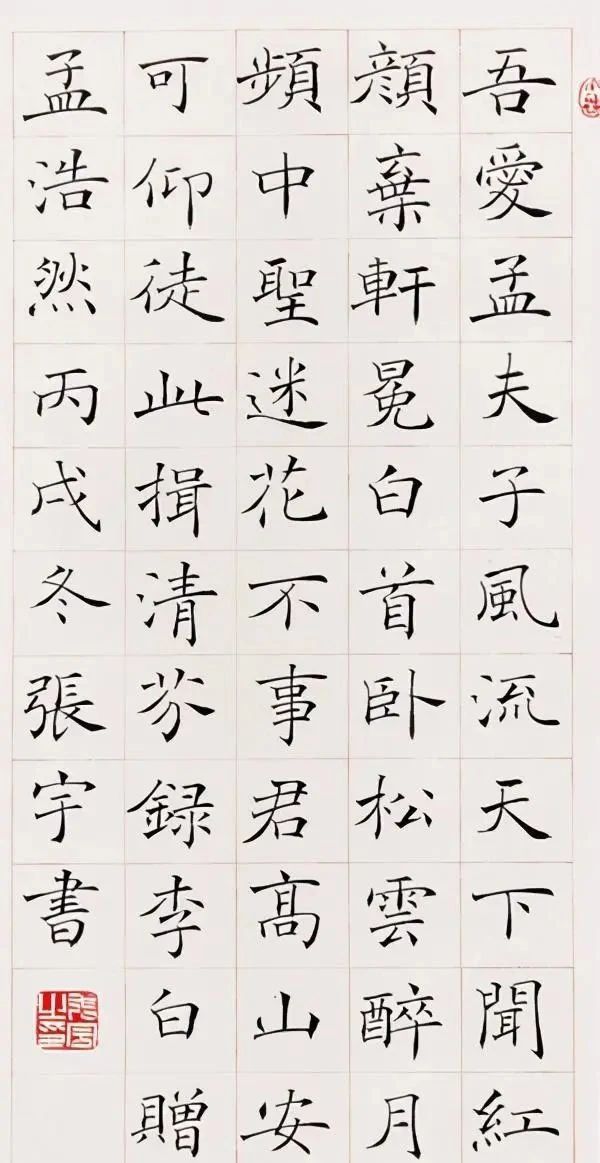 吾愛孟夫子風流天下聞紅
顔棄軒冕白首卧松雲醉月
頻中聖迷花不事君高山安
可仰徒此揖清芬録李白贈
孟浩然丙戌冬張宇書